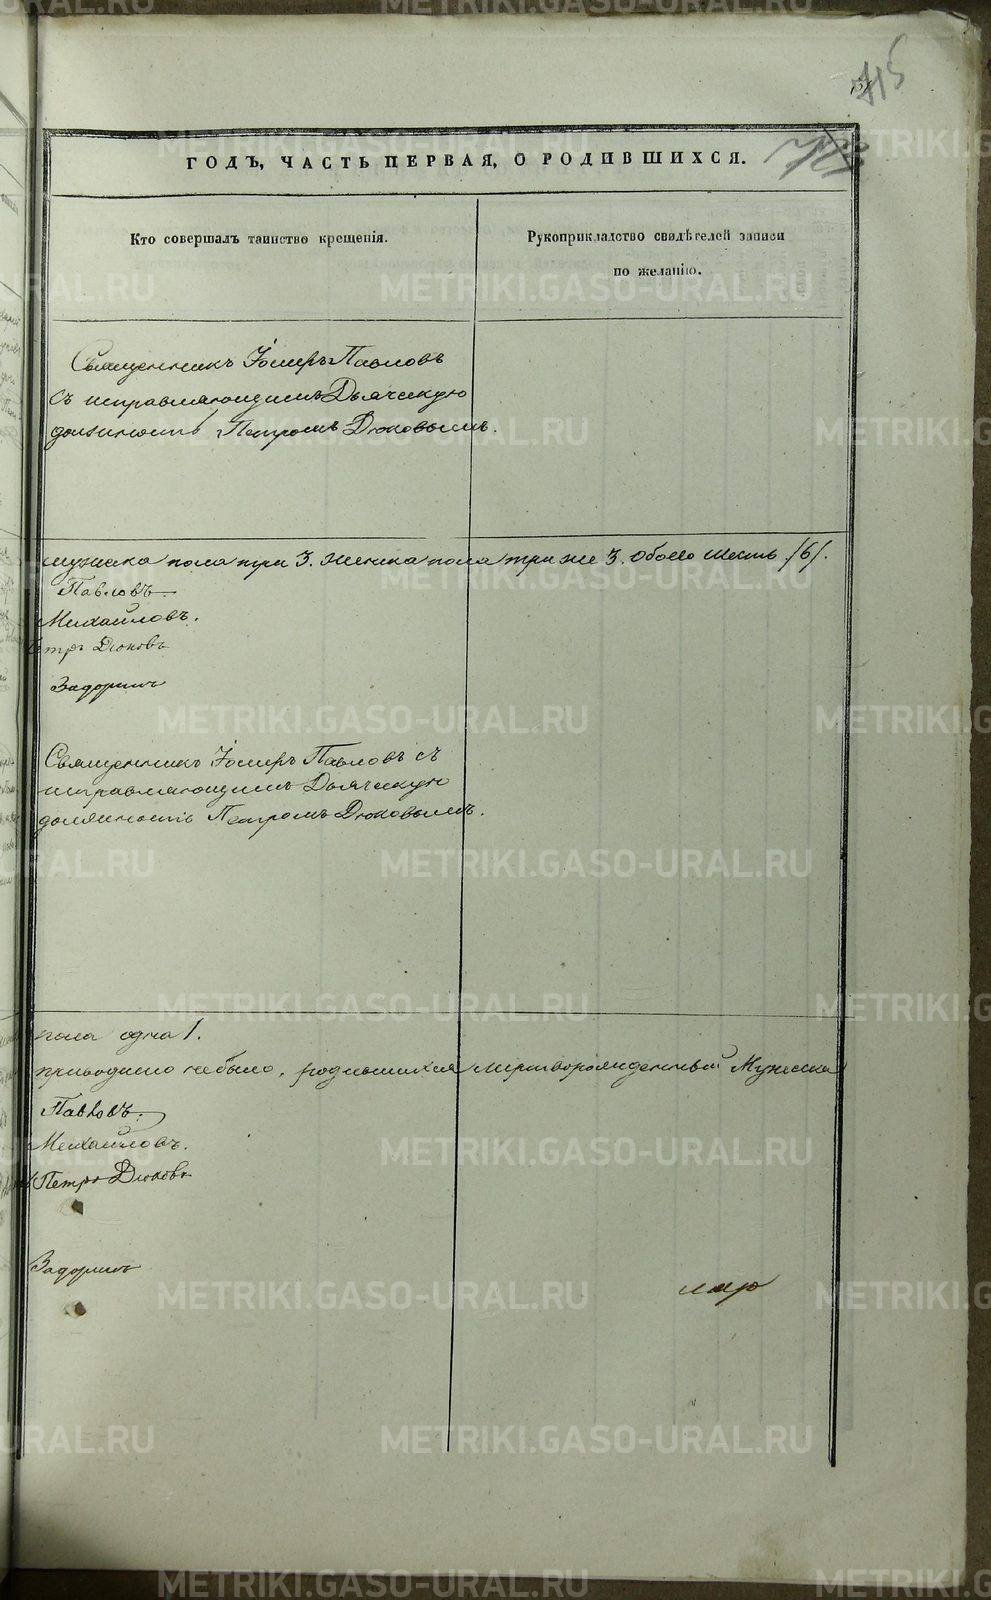 715
ГОДЪ, ЧАСТЬ ПЕРВАЯ, О РОДИВШИХСЯ.
Кто совершалъ таинство крещенія.
Рукоприкладство свидѣтелей записи
по желанію.
Священникъ Іосифъ Павловъ
съ исправляющимъ Дьяческую
должность Петромъ Дюковымъ.
мужска пола три 3. женска пола три же 3. обоего шесть /6/.
Павловъ
Михайловъ.
Петръ Дюковъ
Задоринъ
Священникъ Іосифъ Павловъ съ
исправляющимъ Дьяческую
должность Петромъ Дюковымъ.
пола одна 1.
приводимо небыло, родившихся мертворожденный Мужеска
Павловъ.
Михайловъ.
Петръ Дюковъ
Задоринъ
METRIKI.GASO-URAL.RU